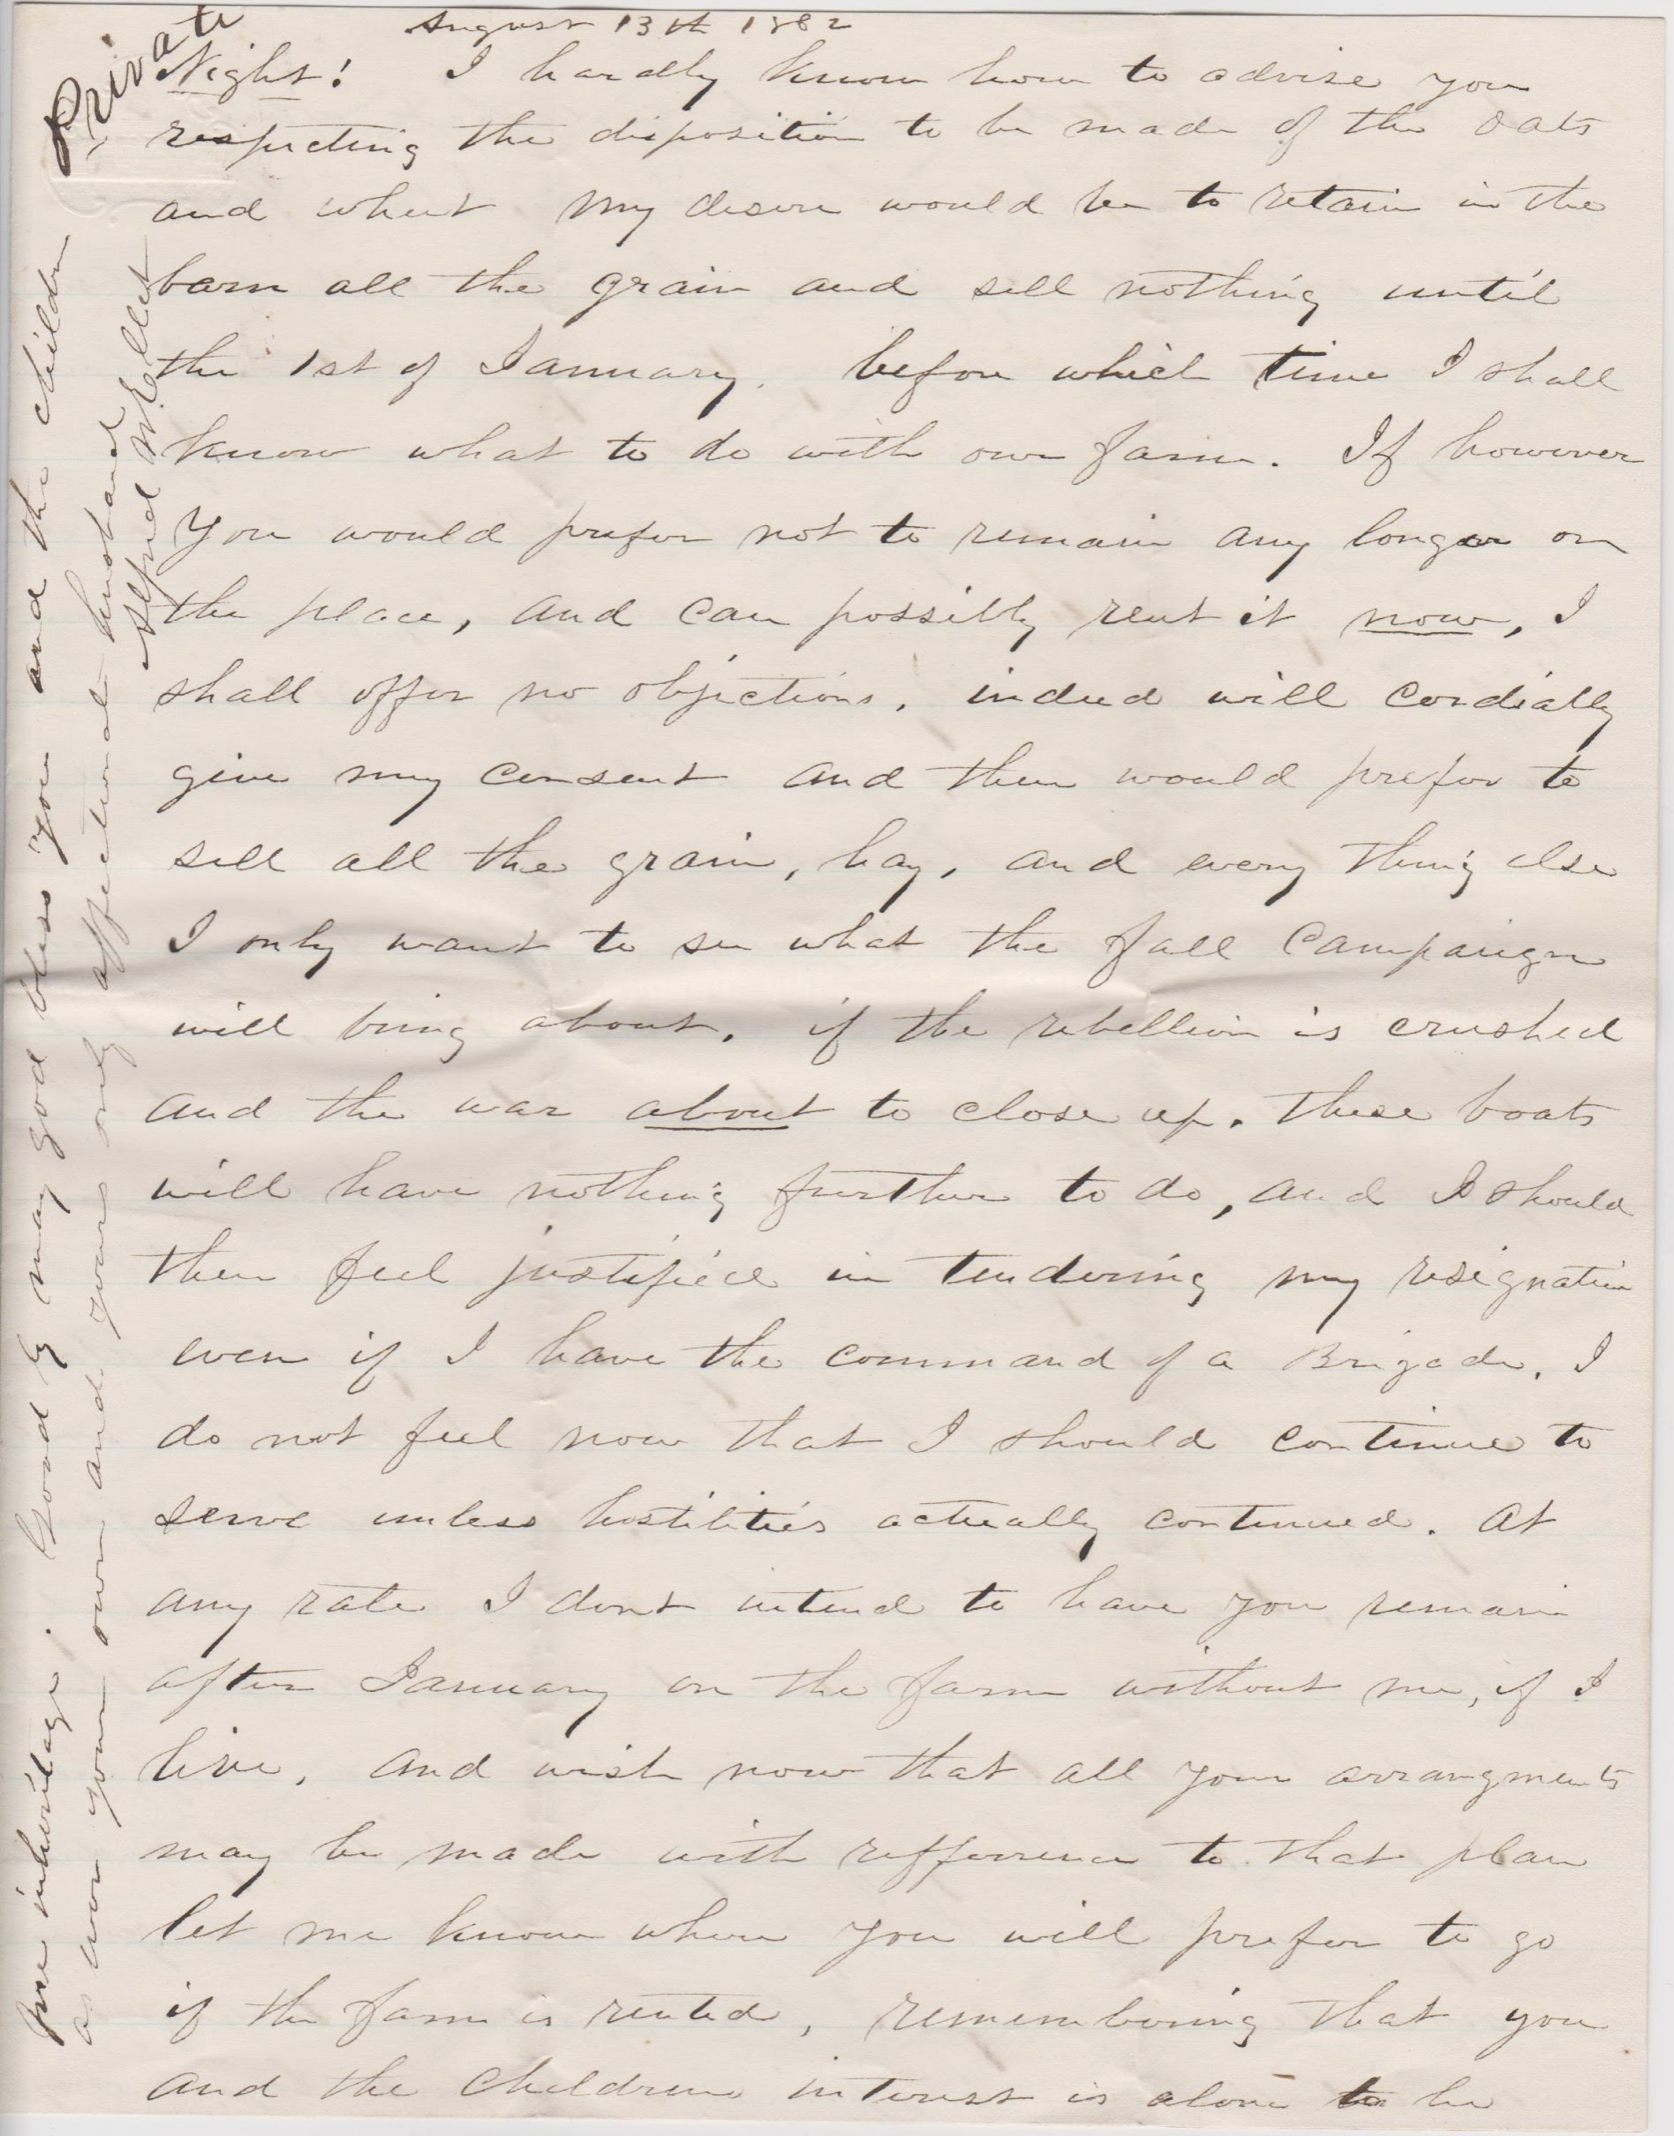 Private
August 13th 1862
Night! I hardly know how to advise you
respecting the disposition to be made of the Oats
and wheat my desire would be to retain in the
barn all the grain and sell nothing until
the 1st of January. before which time I shall
know what to do with our farm. If however
you would prefer not to remain any longer on
the place, and can possibly rent it now, I
shall offer no objections, indeed will cordially
give my consent and then would prefer to
sell all the grain, hay, and every thing else
I only want to see what the fall Campaign
will bring about, if the rebellion is crushed
and the war about to close up. these boats
will have nothing further to do, and I should
then feel justified in tendering my resignation
even if I have the command of a Brigade. I
do not feel now that I should continue to
serve unless hostilities actually continued. At
any rate I dont intend to have you remain
after January on the farm without me, if I
live, and wish now that all your arrangments
may be made with refference to that plan
let me know where you will prefer to go
if the farm is rented, remembering that you
and the children interest is alone to be
inheritage. Good by may god bless you and the children
as ever your own and yours only affectionate husband
Alfred W. Ellet